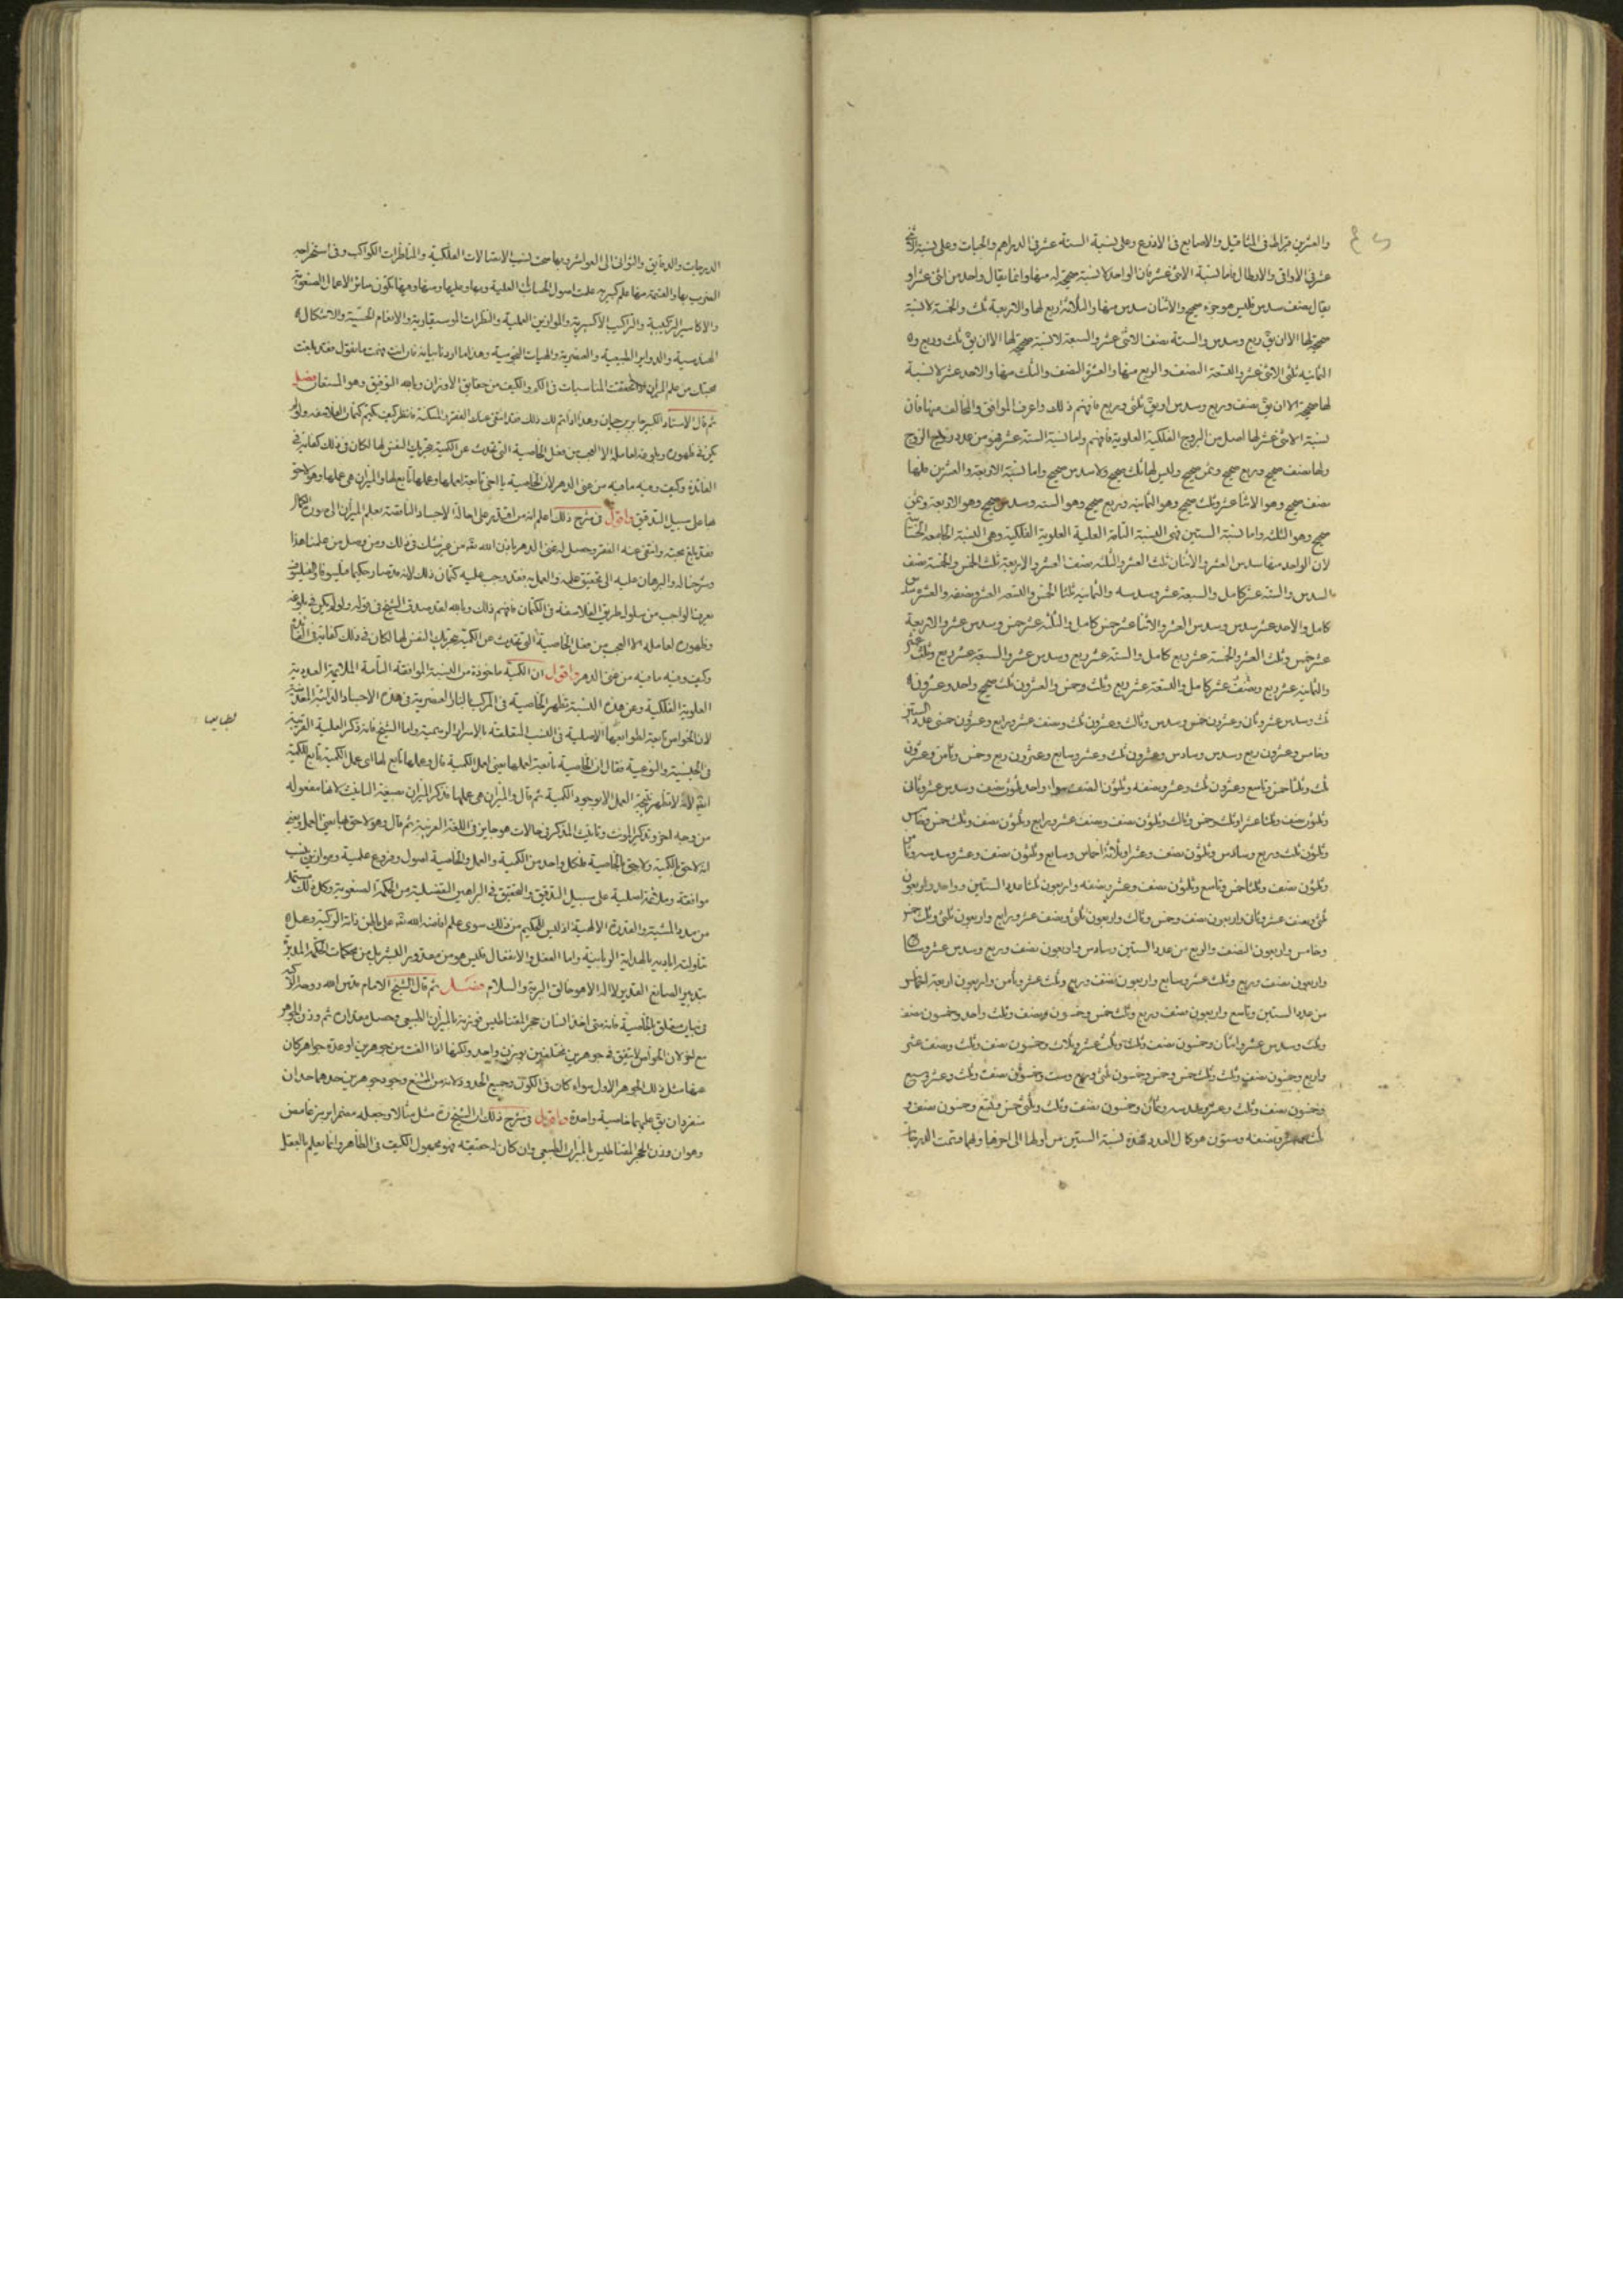 والعشرين قيراط في المثاقيل والاصابع في الاذرع وعلى نسبة الستة عشر في الدراهم والحبات وعلى نسبة الاثنى
عشر في الاواقي والارطال فاما نسبة الاثنى عشر فان الواحد لا نسبة صحيحة له منها وانما يقال واحد من اثنى عشر او
يقال نصف سدس فليس هو جزء صحيح والاثنان سدس منها والثلاثة ربع لها والاربعة ثلث والخمسة لا نسبة
صحيحة لها الا ان يق ربع وسدس والستة نصف الاثنى عشر والسبعة لا نسبة صحيحة لها الا ان يق ثلث وربع و
الثمانيه ثلثى الاثنى عشر والتسعة النصف والربع منها والعشرة النصف والثلث منها والاحد عشر لا نسبة
لها صحيحة الا ان يق نصف وربع وسدس او يق ثلثى وربع فافهم ذلك واعرف الموافق والمخالف منها فان
نسبة الاثنى عشر لها اصل من البروج الفلكية العلوية فافهم واما نسبة الستة عشر فهو من عدد زوج الزوج
ولها نصف صحيح وربع صحيح وثمن صحيح وليس لها ثلث صحيح ولا سدس صحيح واما نسبة الاربعة والعشرين فلها
نصف صحيح وهو الاثنا عشر وثلث صحيح وهو الثمانية وربع صحيح وهو الستة وسدس صحيح وهو الاربعة وثمن
صحيح وهو الثلثة واما نسبة الستين فهى النسبة التامة العلمية العلوية الفلكية وهى النسبة الجامعة
لان الواحد منها سدس العشر والاثنان ثلث العشر والثلثة نصف العشر والاربعة ثلث الخمس والخمسة نصف
السدس والستة عشر كامل والسبعة عشر وسدسه والثمانية ثلثا الخمس والتسعة العشر ونصفه والعشرة سدس
كامل والاحد عشر سدس وسدس العشر والاثنا عشر خمس كامل والثلثة عشر خمس وسدس عشر والاربعة
عشر خمس وثلث العشر والخمسة عشر ربع كامل والستة عشر ربع وسدس عشر والسبعة عشر ربع وثلث عشر
والثمانية عشر ربع ونصف عشر كامل والتسعة عشر ربع وثلث وخمس والعشرون ثلث صحيح واحد وعشرون
ثلث وسدس عشر وثان وعشرون خمس وسدس وثالث وعشرون ثلث ونصف عشر ورابع وعشرون خمسى عدد الستين
وخامس وعشرون ربع وسدس وسادس وعشرون ثلث وعشر وسابع وعشرون ربع وخمس وثامن وعشرون
ثلث وثلثا خمس وتاسع وعشرون ثلث وعشر ونصفه وثلثون النصف سواء واحد ثلثون نصف وسدس عشر وثانى
وثلثون نصف وثلثا عشر او ثلث وخمس وثالث وثلثون نصف ونصف عشر ورابع وثلثون نصف وثلث خمس وخامس
وثلثون ثلث وربع وسادس وثلثون نصف وعشر او ثلاثة اخماس وسابع وثلثون نصف وعشر وسدسه وثامن
وثلثون نصف وثلثا خمس وتاسع وثلثون نصف وعشر ونصفه واربعون ثلثا عدد الستين وواحد واربعون
ثلثى ونصف عشر وثان واربعون نصف وخمس وثالث واربعون ثلثى ونصف عشر ورابع واربعون ثلثى وثلث خمس
وخامس واربعون النصف والربع من عدد الستين وسادس واربعون نصف وربع وسدس عشر
واربعون نصف وربع وثلث عشر وسابع واربعون نصف وربع وثلث عشر وثامن واربعون اربعة اخماس
من عدد الستين وتاسع واربعون نصف وربع وثلث خمس وخمسون ونصف وثلث واحد وخمسون نصف
وثلث وسدس عشر واثنان وخمسون نصف وثلث وثلث عشر وثلاث وخمسون نصف وثلث ونصف عشر
واربع وخمسون نصف وثلث وثلث خمس وخمس وخمسون ثلثى وربع وست وخمسون نصف وثلث وعشر وسبع
وخمسون نصف وثلث وعشر وسدسه وثمان وخمسون نصف وثلث وثلثى خمس وتسع وخمسون نصف و
ثلث وعشر ونصفه وستون هو كمال العدد فهذه نسبة الستين من اولها الى اخرها وبها قسمت الدرجات
الدرجات والدقايق والثوانى الى العواشر وبها صحت نسب الاتصالات الفلكية والمناظرات الكواكب وفى استخراج
الضرب بها والقسمة منها علم كبير علمت اصول الحساب العلمية وبها وعليها ومنها وفيها تكون ساير الاعمال الصنعوية
والاكاسير التركيبية والتراكيب الاكسيرية والموازين العملية والنظرات الموسيقاوية والانغام الحسية والاشكال
الهندسية والدواير الطبيعية والعنصرية والهيات النجومية وهذا ما اردنا بيانه فان انت فهمت ما نقول فقد بلغت
محبتك من علم الميزان تحققت المناسبات فى الكم والكيف من حقايق الاوزان وبالله التوفيق وهو المستعان فصل
ثم قال الاستاد الكبير جابر بن حيان وهذا اذا تم لك ذلك فقد انتفى عنك الفقر والمسكنة فانظر كيف يكتم كتمان الفلاسفه ولو لم
يكن فى ظهوره وبلوغه لعامله الا العجب من فعل الخاصية التى تحدث عن الكمية بتحريك النفس لها لكان فى ذلك كفاية فى
الفائدة وكيف وفيه ما فيه من غنى الدهر لان الخاصية يا اخى تابعة لعملها وعملها تابع لها والميزان هى عملها وهو لاحق
بها على سبيل التدقيق واقول فى شرح ذلك اعلم انه من اقتدر على احالة الاجساد الناقصة بعلم الميزان الى صورة الكمال
فقد بلغ محبته وانتفى عنه الفقر وحصل له غنى الدهر باذن الله تعالى من غير شك فى ذلك ومن وصل من علمنا هذا
وشرحنا له والبرهان عليه الى تحقيق علمه والعمل به فقد وجب عليه كتمان ذلك لانه قد صار حكيما فيلسوفا والفيلسوف
يعرف الواجب من سلوك طريق الفلاسفة فى الكتمان فافهم ذلك وبالله لقد صدق الشيخ فى قوله ولو لم يكن فى بلوغه
وظهوره لعامله الا العجب من فعل الخاصية التى تحدث عن الكمية بتحريك النفس لها لكان فى ذلك كفاية فى الفائدة
وكيف وفيه ما فيه من غنى الدهر واقول ان الكمية ماخوذة من النسبة الموافقة التامة الملائمة العددية
العلوية الفلكية وعن هذه النسبة تظهر الخاصية فى المركب بالنار العنصرية فى هذه الاجساد الذائبة المعدنية
لان الخواص تابعة لطوابعها الاصلية فى النسب المتعلقة بالاسرار الرسمية واما الشيخ فانه ذكر العلمية القريبة
فى الجنسية والنوعية فقال ان الخاصية تابعة لعملها يعنى لعمل الكمية قال وعملها تابع لها اى عمل الكمية تابع للكمية
لانه لا تظهر نتيجة العمل الا بوجود الكمية ثم قال والميزان هى عملها فذكر الميزان بصيغة التانيث لانها مفعوله
من وجه اخر وتذكير المونث وتانيث المذكر فى حالات هو جايز فى اللغة العربية ثم قال وهو لاحق بها يعنى العمل يعنى
انه لاحق بالكمية ولاحق بالخاصية فلكل واحد من الكمية والعمل والخاصية اصول وفروع علمية وموازين نسب
موافقة وملائمة اصلية على سبيل التدقيق والتحقيق فى البراهين الفضلية من الحكمة الصنعوية وكل ذلك مستمد
من مدد المشية والقدرة الالهية اذ ليس للحكيم من ذلك سوى علم افاضه الله تعالى على باطن ذاته الزكية وعمل
تناولته اياديه بالهداية الربانية واما الفعل والانفعال فليس هو من مقدور البشر بل من محكمات الحكمة المدبرة
بتدبير الصانع القدير لا اله الا هو خالق البرية والسلام فصل ثم قال الشيخ الامام قدس الله روحه الا
فى بيان متعلق بالخاصية فانه متى اخذ انسان حجر المغناطيس فوزنه بالميزان الطبيعى وحصل مقداره ثم وزن الجوهر
مع لان الخواص لا يتفق فى جوهرين مختلفين بوزن واحد ولكنها اذا الفت من جوهرين او عدة جواهر كان
عنها مثل ذلك الجوهر الاول سواء كان فى الكون وجميع الحدود لانه من الممتنع وجود جوهرين حدهما حد ان
منفردان يق عليهما خاصية واحدة واقول فى شرح ذلك ان الشيخ مثل مثالا وجعله مضمرا برمز غامض
وهو ان وزن الحجر المغناطيس بالميزان الطبيعى وان كان له حقيقة فهو مجهول الكيف فى الظاهر وانما يعلم بالعقل
لطبايعها